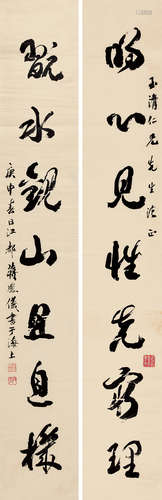 玉清仁兄先生法正
明心見性先窮理
翫水觀山且息機
庚申春日江都蔣恩儀書于海上